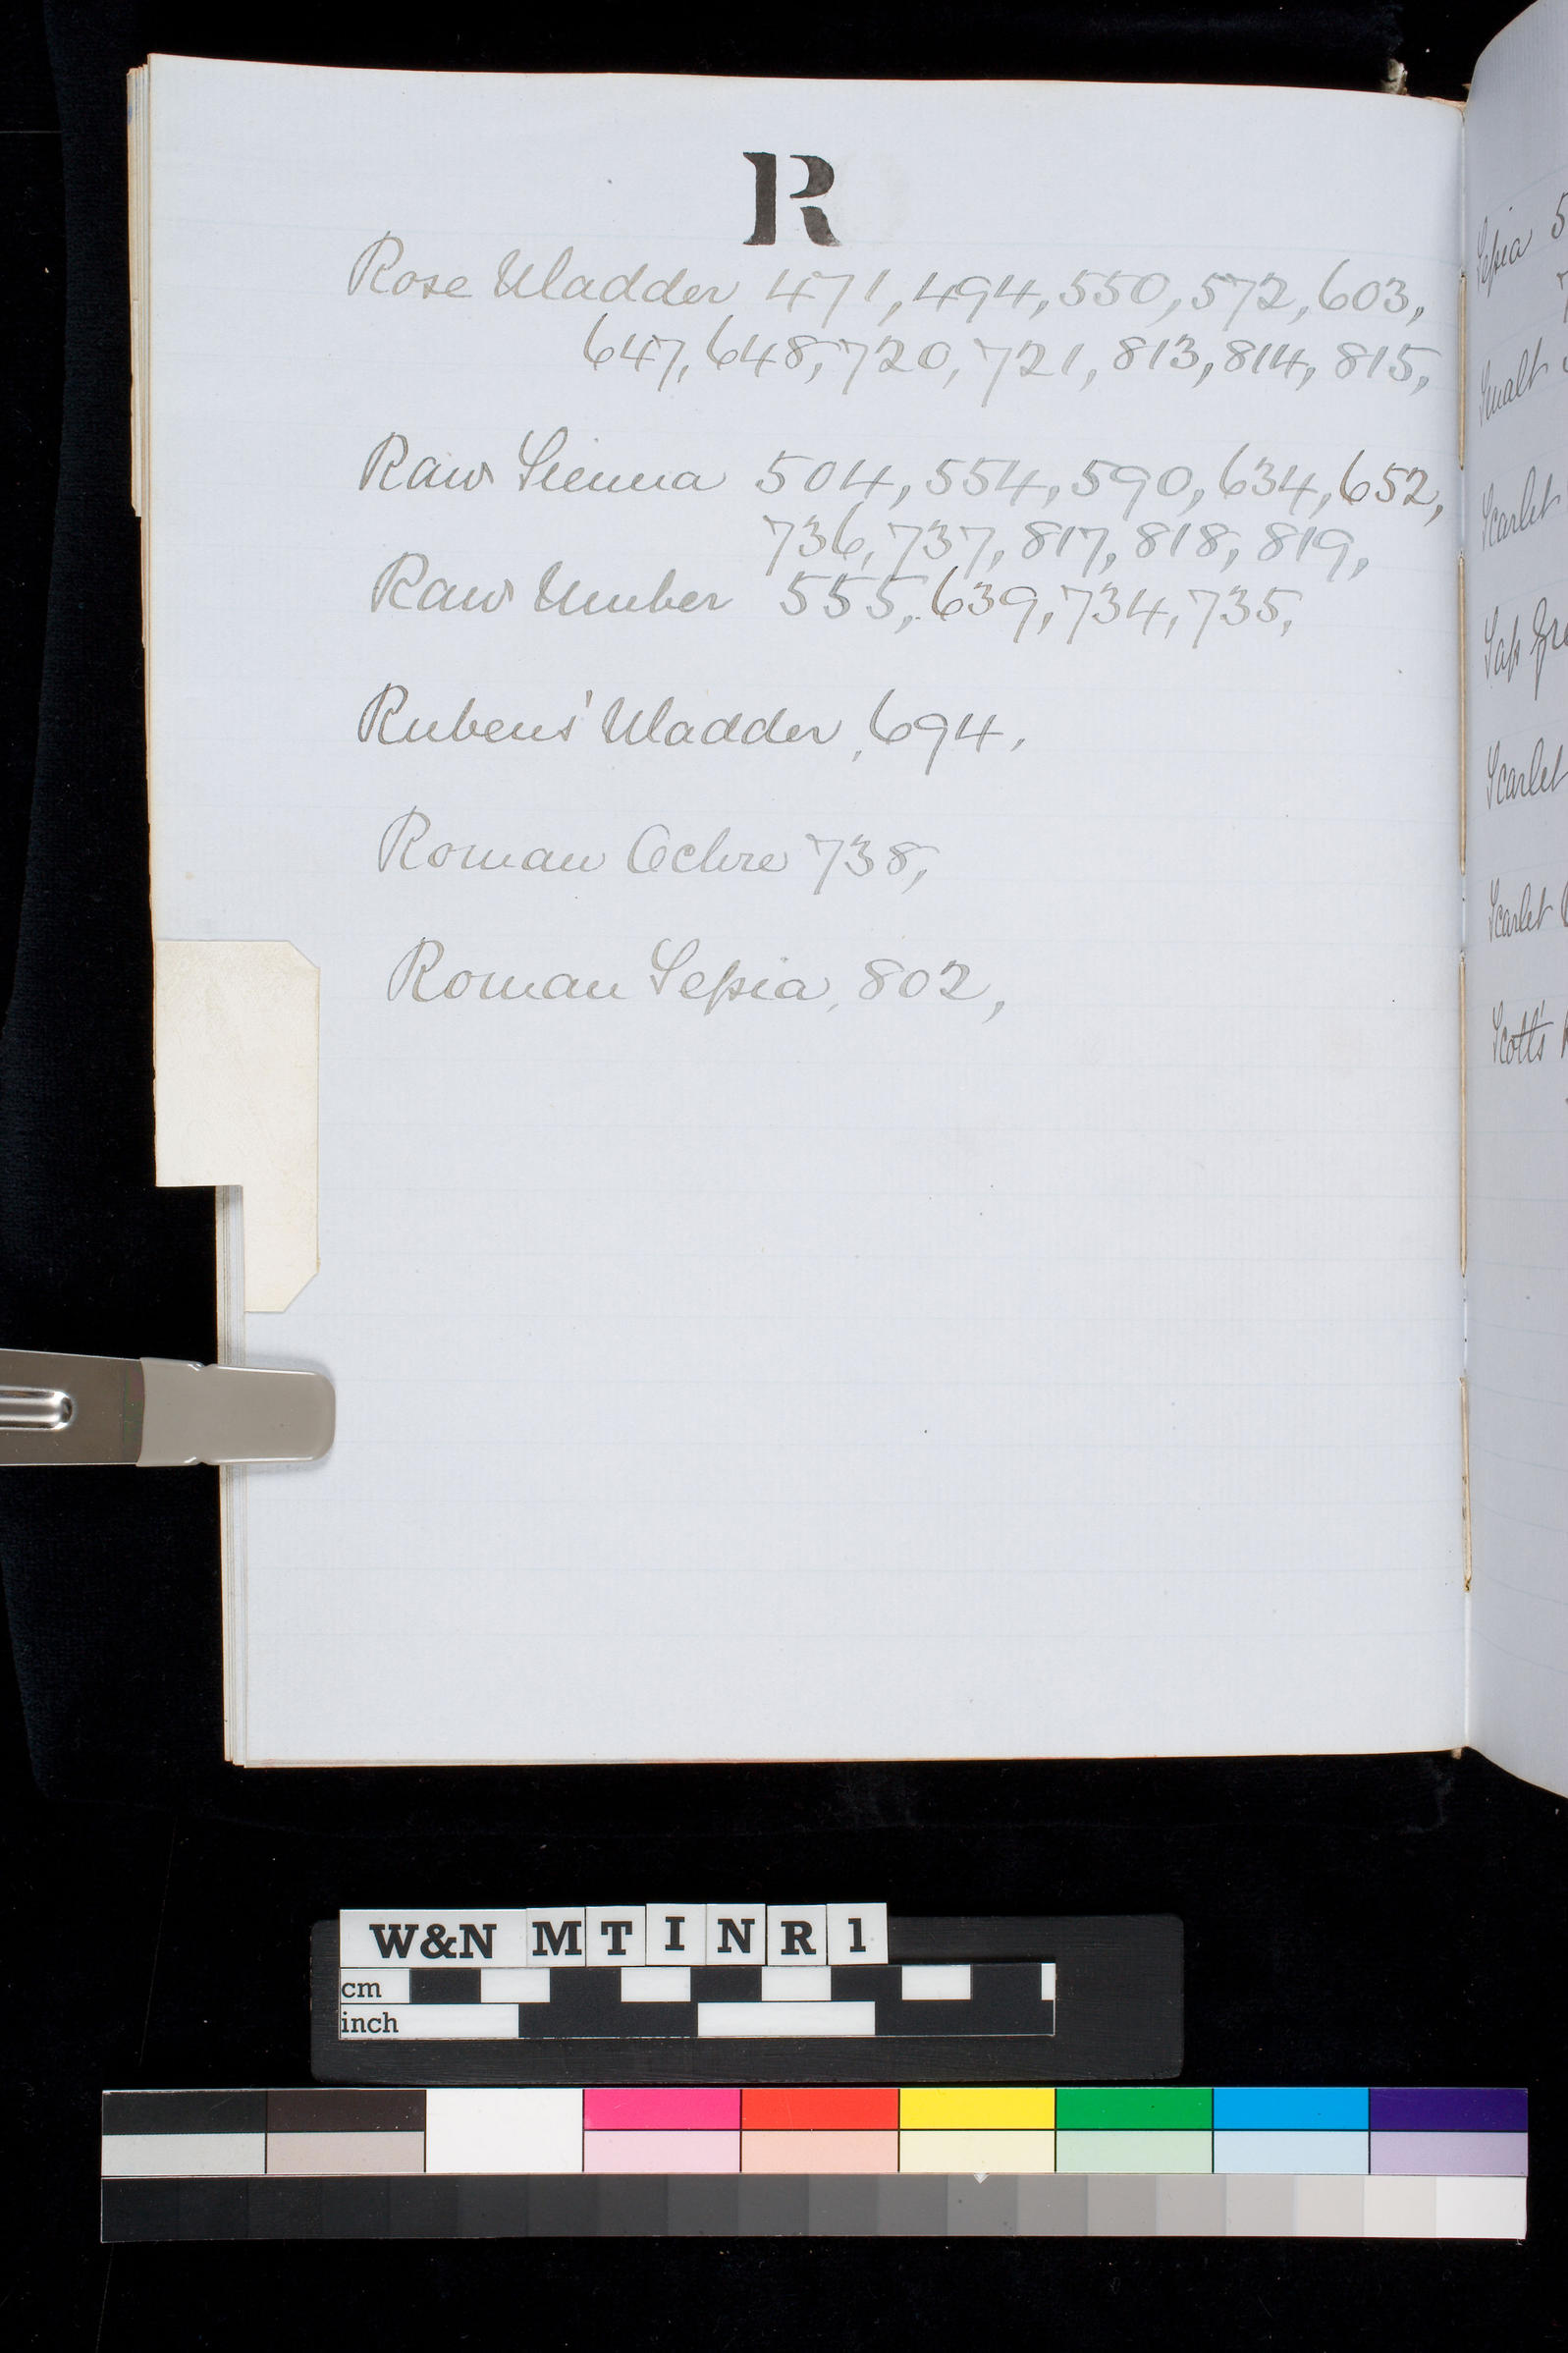 R
Rose Madder 471, 494, 550, 572, 603,
647, 648, 720, 721, 813, 814, 815,
Raw Sienna 504, 554, 590, 634, 652,
736, 737, 817, 818, 819,
Raw Umber 555, 639, 734, 735,
Rubens' Madder, 694,
Roman Ochre 738,
Roman Sepia, 802,
Sepia 5
7
Smalt
Scarlet
Sap Gre
Scarlet
Scarlet
Scott's
W&N MTINR1
cm
inch